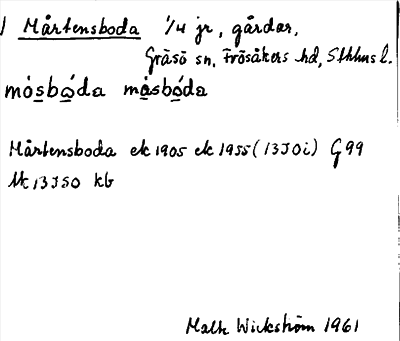 Mårtensboda 1/4 jr, gårdar,
Gräsö sn, Frösåkers hd, Sthlms l.
mósbǫ́da må̀sbǫ́da
Mårtensboda ek 1905 ek 1955 (13J0i) G 99
13J50 kb
Wickström 1961